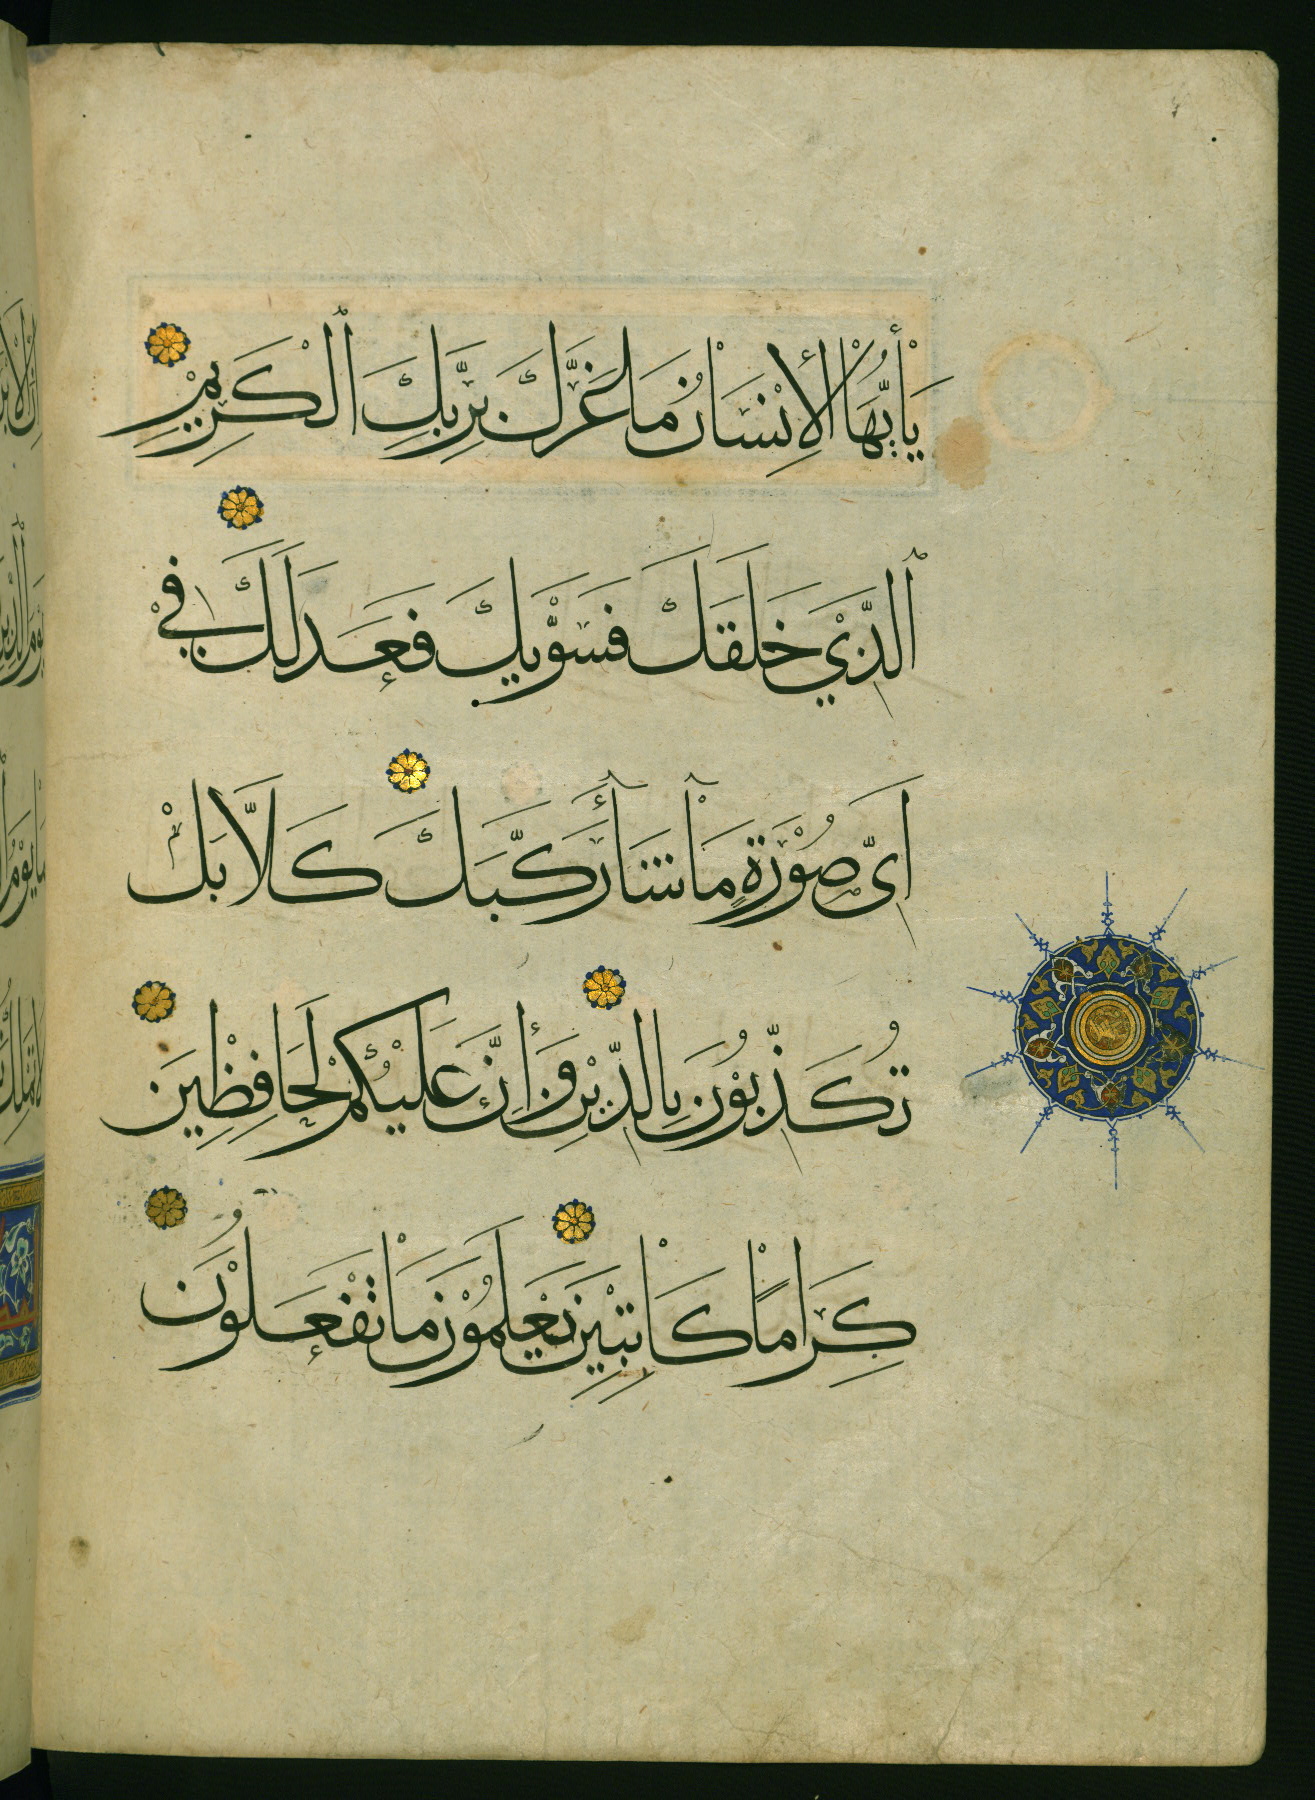 يَا أَيُّهَا الْإِنْسَانُ مَا غَرَّكَ بِرَبِّكَ الْكَرِيمِ
الَّذِي خَلَقَكَ فَسَوّٰيكَ فَعَدَلَكَ فِي
اَيِّ صُوْرَةٍ مَا شَآءَ رَكَّبَكَ كَلَّا بَلْ
تُكَذِّبُوْنَ بِالدِّيْنِ وَاِنَّ عَلَيْكُمْ لَحَافِظِيْنَ
كِرَامًا كَاتِبِيْنَ يَعْلَمُوْنَ مَا تَفْعَلُوْنَ